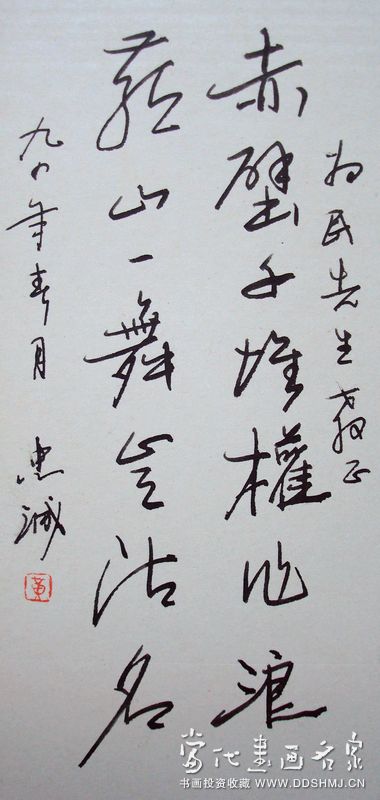 为民先生教正
赤壁千堆權作浪
山一舞豈沽名
九年春月 忠诚
黄
当代書画名家
书画投资收藏 WWW.DDSHMJ.CN